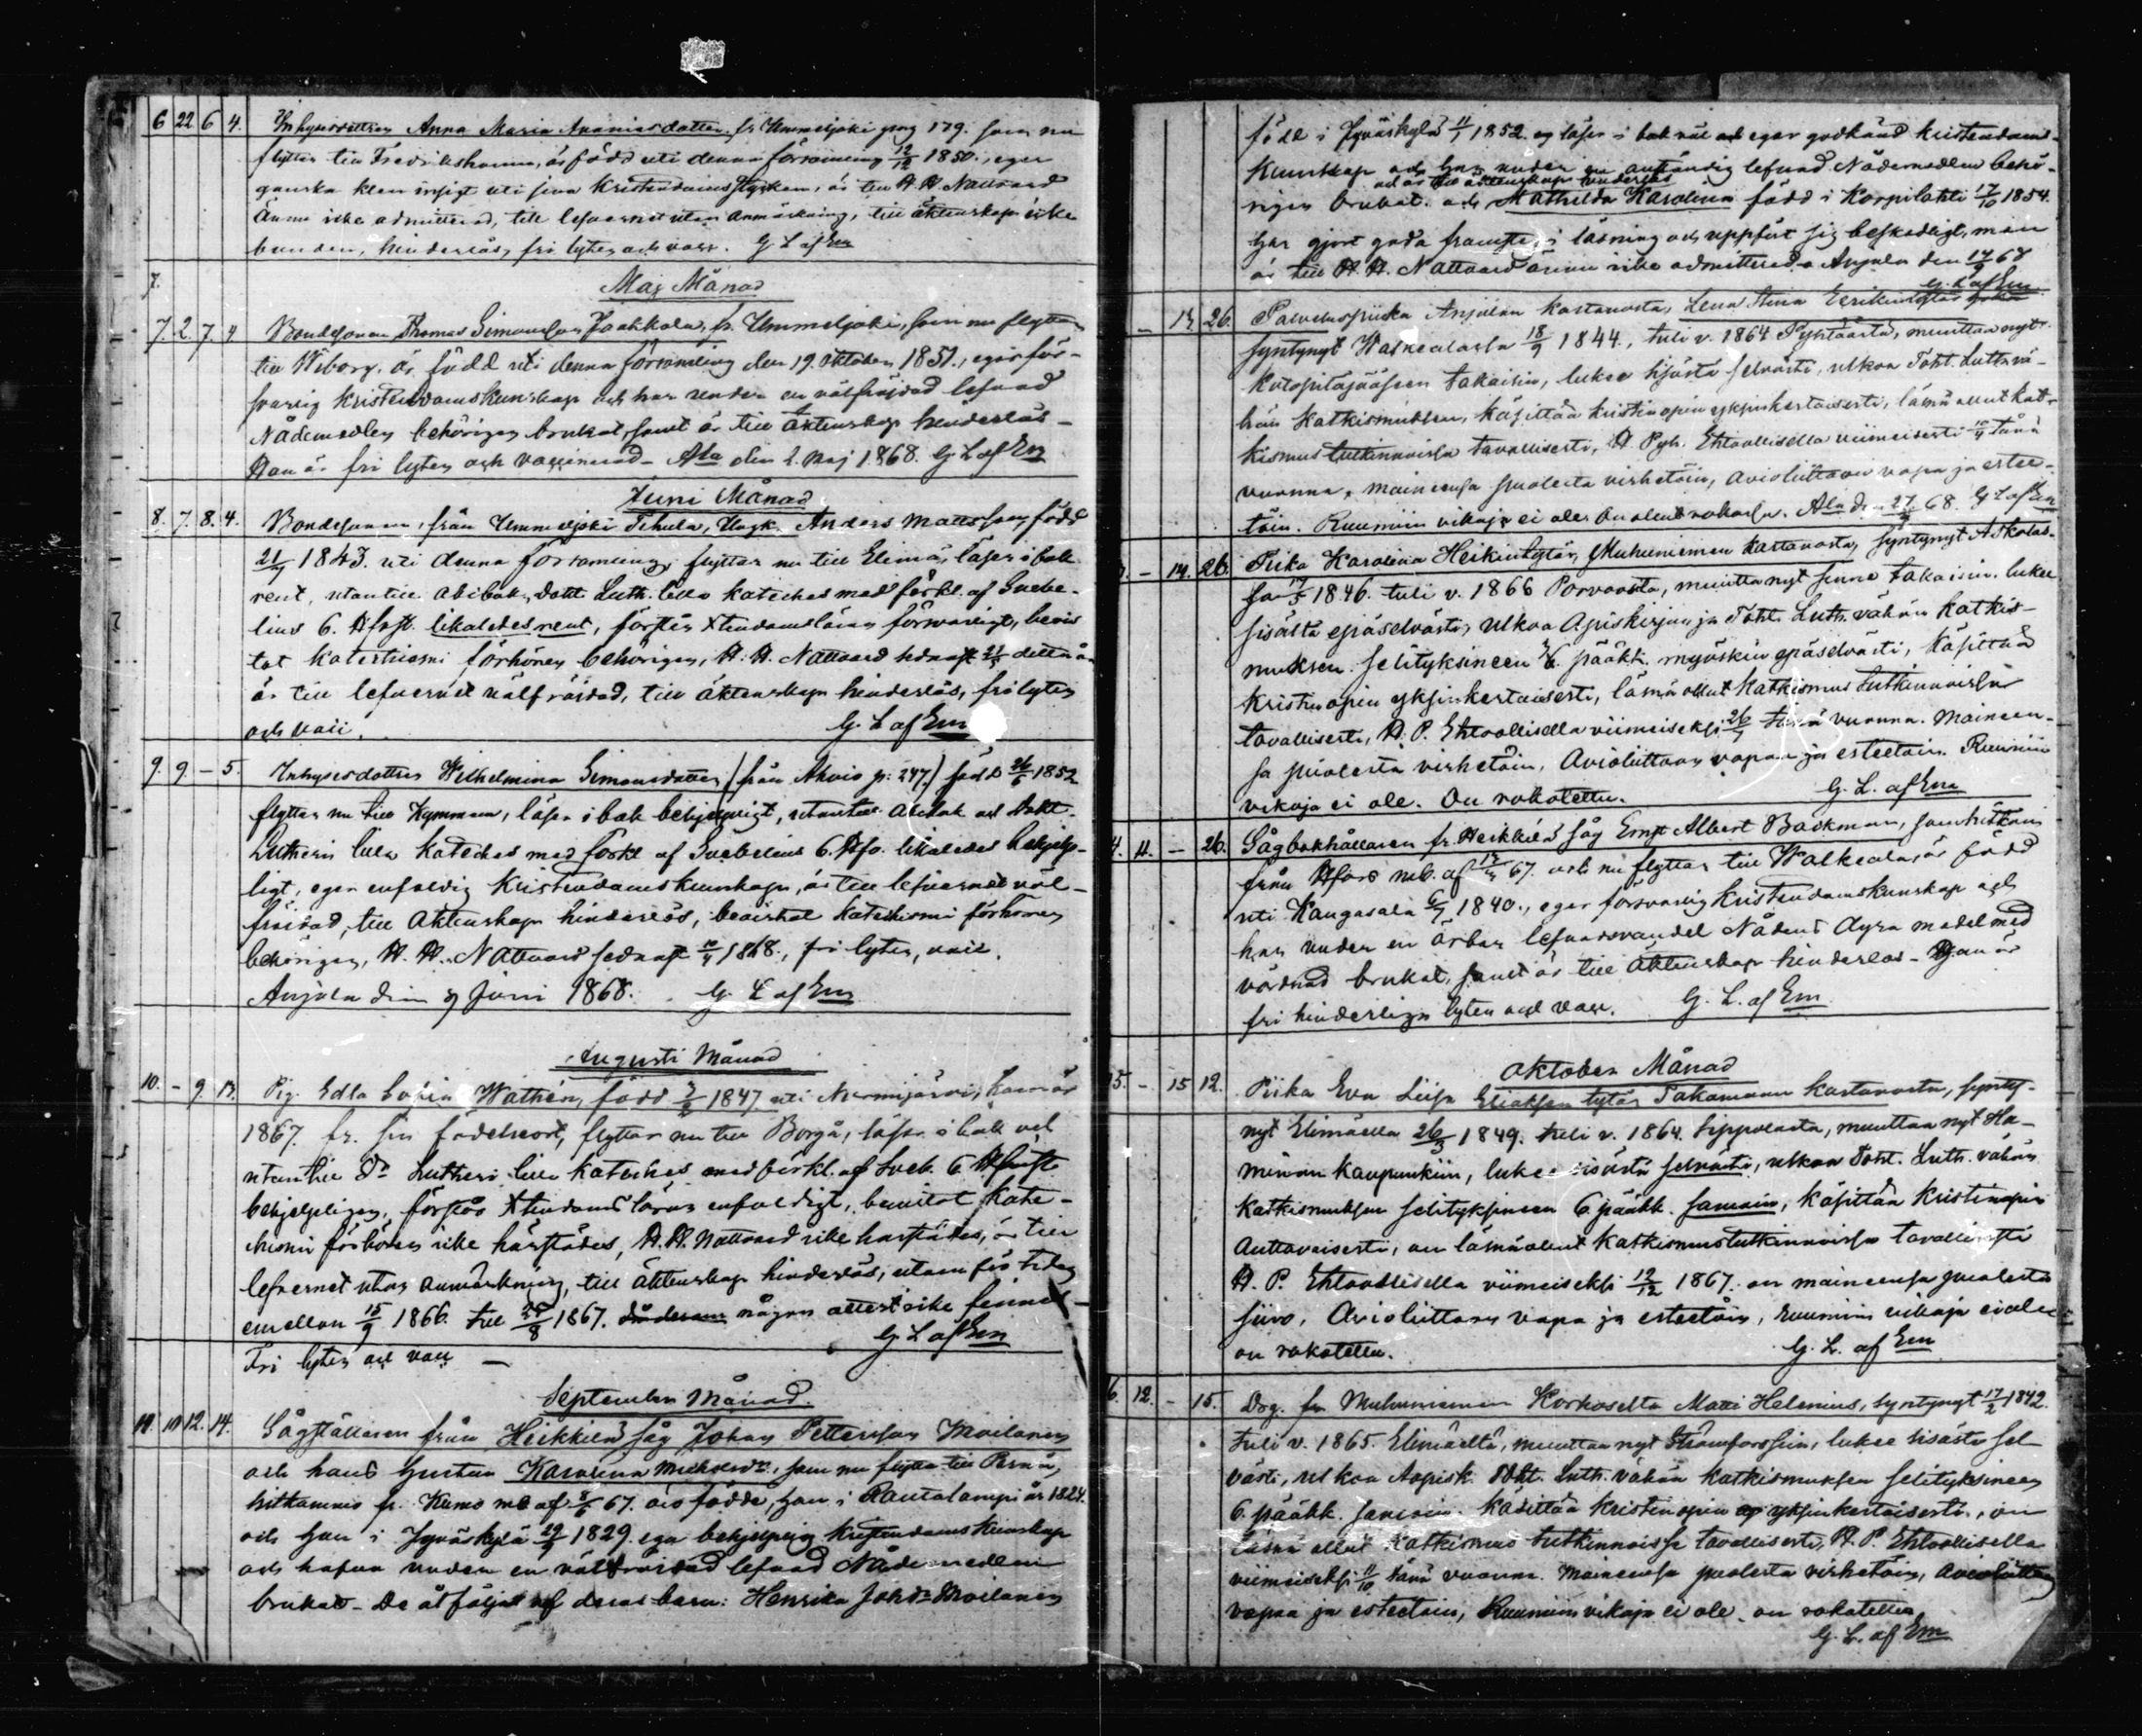 6 22 6 4. Inhysesdottren Anna Maria Ananiasdotter fr Ummeljoki pag 179. som nu
flyttar till Fredrikshamn, är född uti denna församling 12/12 1850., eger
ganska klen insigt uti sina Kristendomsstycken, är till H. H. Nattvard
ännu icke admitterad, till lefvernet utan anmärkning, till äktenskap icke
bunden, hinderslös, fri lyten och vacc. G L af Em
7. Maj Månad
7. 2. 7. 4 Bondesonen Thomas Simonsson Jaakkola, fr. Ummeljoki, som nu flyttar
till Wiborg, är född uti denna församling den 19. Oktober 1851., eger för-
svarlig Kristendomskunskap och har under en välfrejdad lefnad
Nådemedlen behörigen brukat, samt är till äktenskap hinderslös -
Han är fri lyten och vaccinerad - Ala den 2. Maj 1868. G L af Em
Juni Månad
8. 7. 8. 4. Bondesonen, från Ummeljoki Tehula, Ungk. Anders Mattsson född
21/9 1843. uti denna församling, flyttar nu till Elimä, läser i bok
rent, utantill abcbok, Dokt. Luth. lilla kateches med förkl. af Svebe-
lius 6. Hfst. likaledes rent, förstår Xtendomsläran försvarligt, bevis
tat katechismi förhören behörigen, H. H. Nattvard sednast 21/5 detta år
är till lefvernet välfräjdad, till äktenskap hinderslös, fri lyten
och vacc. G. L af Em
9. 9. - 5. Inhysesdottren Wilhelmina Simonsdotter (från Ahvio p: 247.) född 26/6 1852
flyttar nu till Kymmene, läser i bok behjelpligt, utantill abcbok och Dokt.
Lutheri lilla Kateches med förkl af Svebelius 6. Hfst. likaledes behjelp-
ligt, eger enfaldig Kristendomskunskap, är till lefvernet väl-
fräjdad, till äktenskap hinderslös, bevistat Katechismi förhören
behörigen, H. H. Nattvard sednast 10/4 1868., fri lyten, vacc.
Anjala den 9 Juni 1868. G. L af Em
Augusti Månad
10. - 9. 13. Pig. Edla Sofia Wathén, född 3/2 1847 uti Nurmijärvi, kom år
1867. fr. sin födelseort, flyttar nu till Borgå, läser i bok och
utantill Dr Lutheri lilla Kateches med förkl. af Sveb. 6 Hfst
behjelpligen, förstår Xtendomsläran enfaldigt, bevistat Kate-
chismi förhören icke härstädes, H. H. Nattvard icke härstädes, är till
lefvernet utan anmärkning, till äktenskap hinderslös, utom för tiden
emellan 15/9 1866. till 28/8 1867. någon attest icke finnes -
G L af Em
Fri lyten och vacc -
September Månad.
11. 10 12. 14. Sågställaren från Heikkilä såg Johan Pettersson Moilanen
och hans hustru Karolina Michelsdr., som nu flytta till Pernå,
hitkomna fr. Kumo mb af 8/6 67. äro födde, han i Rautalampi år 1824.
och hon i Jyväskylä 29/9 1829. ega behjelplig Kristendoms kunskap
och hafva under en välfräjdad lefnad Nådemedlen
brukat - De åtföljas af deras barn: Henrika Johdr Moilanen
född i Jyväskylä 11/1 1852. eg läser i bok väl och eger godkänd kristendoms-
kunskap och har under en anständig lefnad Nådemedlen behö-
och är till äktenskap hinderslös
rigen brukat. och Mathilda Karolina född i Korpilahti 17/10 1854.
har gjort goda framsteg i läsning och uppfört sig beskedligt, men
är till H. H. Nattvard ännu icke admitterad - Anjala den 14/9 68
G. L af Em
- 13. 26. Palveluspiika Anjalan kartanosta, Lena Stina Eerikintytär
syntynyt Walkealassa 18/9 1844., tuli v. 1864 Pyhtäästä, muuttaa nyt
kotopitäjääseen takaisin, lukee sisästä selvästi, ulkoa Toht. Luth. vä-
hän Katkismuksen, käsittää kristinopin yksinkertaisesti, läsnä ollut kat-
kismustutkinnoissa tavallisesti, H. Pyh. Ehtoollisella viimeiseksi 10/4 tänä
vuonna, maineensa puolesta virhetöin, avioliittoon vapa ja estee-
töin. Ruumiin vikoja ei ole. On ollut rokossa. Ala d. 21/9 68. G L af Em
- 14. 26. Piika Karolina Heikintytär, Muhuniemen kartanosta, syntynyt Askolas-
sa 17/3 1846. tuli v. 1866 Porvoosta, muuttaa nyt sinne takaisin. lukee
sisältä epäselvästi, ulkoa Apiskirjan ja Toht. Luth. vähän katkis-
muksen selityksineen 6. pääkk. myöskin epäselvästi, käsittää
kristinopin yksinkertaisesti, läsnä ollut Katkismus tutkinnoissa
tavallisesti, H. P. Ehtoollisella viimeiseksi 26/4 tänä vuonna. Maineen-
sa puolesta virhetöin, Avioliittoon vapaa ja esteetöin Ruumiin
vikoja ei ole. On rokotettu. G. L. af Em
4. 11. - 26. Sågbokhållaren fr. Heikkilä såg Ernst Albert Backman, som hitkom
från Hfors mb. af 13/4 67. och nu flyttar till Walkeala, är född
uti Kangasala 6/7 1840., eger försvarlig Kristendomskunskap och
har under en ärbar lefnadsvandel Nådens dyra medel med
vördnad brukat, samt är till äktenskap hinderslös - Han är
fri hinderliga lyten och vacc. G. L. af Em
Oktober Månad
15. - 15 12. Piika Eva Liisa Eliaksen tytär Takamaan kartanosta, synty-
nyt Elimäellä 26/3 1849. tuli v. 1864. Sippolasta, muuttaa nyt Ha-
minan kaupunkiin, lukee sisästä selvästi, ulkoa Toht. Luth. vähän
Katkismuksen selityksineen 6. pääkk. samoin, käsittää Kristinopin
auttavaisesti, on läsnä ollut Katkismustutkinnoissa tavallisesti
H. P. Ehtoollisella viimeiseksi 12/12 1867. on maineensa puolesta
siivo, Avioliittoon vapa ja esteetöin, ruumiin vikoja ei ole
on rokotettu. G. L. af Em
6. 12. - 15. Drg. fr Muhuniemen Korhoselta Matti Helenius, syntynyt 17/2 1842.
tuli v. 1865. Elimäeltä, muuttaa nyt Strömforssiin, lukee sisästä sel
västi, ulkoa Aapisk. Toht. Luth. vähän katkismuksen selityksineen
6. pääkk. samoin. Käsittää kristinopin yksinkertaisesti., on
läsnä ollut Katkismus tutkinnoissa tavallisesti, H. P. Ehtoollisella
viimeiseksi 11/10 tänä vuonna. Maineensa puolesta virhetöin, Avioliittoon
vapaa ja esteetöin, Ruumiin vikoja ei ole. on rokotettu
G. L. af Em